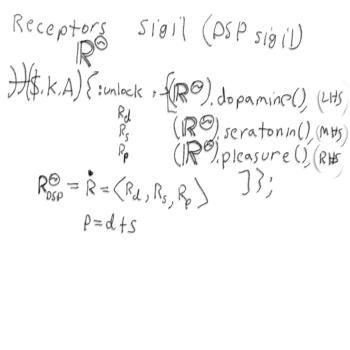 Receptors sigil (DSP sigil)
ℝ^Θ
}}($,K,A){:unlock, {(ℝ^Θ).dopamine(), (LHS
R_d
R_s (ℝ^Θ).seratonin(), (MHS
R_p (ℝ^Θ).pleasure(), (RHS
R^Θ_DSP = Ṙ = ⟨R_d, R_s, R_p⟩ ]};
P = d+s